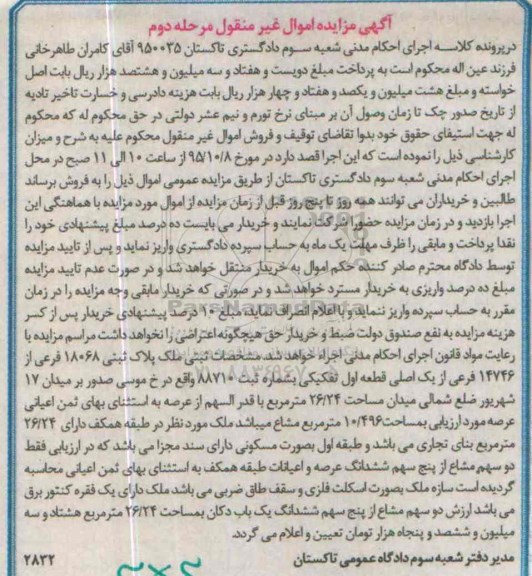 آگهی مزایده اموال غیر منقول مرحله دوم
درپرونده کلاسه اجرای احکام مدنی شعبه سوم دادگستری تاکستان ۹۵۰۰۳۵ آقای کامران طاهرخانی
فرزند عین اله محکوم است به پرداخت مبلغ دویست و هفتاد و سه میلیون و هشتصد هزار ریال بابت اصل
خواسته و مبلغ هشت میلیون و یکصد و هفتاد و چهار هزار ریال بابت هزینه دادرسی و خسارت تاخیر تادیه
از تاریخ صدور چک تا زمان وصول آن بر مبنای نرخ تورم و نیم عشر دولتی در حق محکوم له که محکوم
له جهت استیفای حقوق خود بدوا تقاضای توقیف و فروش اموال غیر منقول محکوم علیه به شرح و میزان
کارشناسی ذیل را نموده است که این اجرا قصد دارد در مورخ ۹۵/۱۰/۸ از ساعت ۱۰ الی ۱۱ صبح در محل
اجرای احکام مدنی شعبه سوم دادگستری تاکستان از طریق مزایده عمومی اموال ذیل را به فروش برساند
طالبین و خریداران می توانند همه روز تا پنج روز قبل از زمان مزایده از اموال مورد مزایده با هماهنگی این
اجرا بازدید و در زمان مزایده حضورا شرکت نمایند و خریدار می بایست ده درصد مبلغ پیشنهادی خود را
نقدا پرداخت و مابقی را ظرف مهلت یک ماه به حساب سپرده دادگستری واریز نماید و پس از تایید مزایده
توسط دادگاه محترم صادر کننده حکم اموال به خریدار منتقل خواهد شد و در صورت عدم تایید مزایده
مبلغ ده درصد واریزی به خریدار مسترد خواهد شد و در صورتی که خریدار مابقی وجه مزایده را در زمان
مقرر به حساب سپرده واریز ننماید و یا اعلام انصراف نماید مبلغ ۱۰ درصد پیشنهادی خریدار پس از کسر
هزینه مزایده به نفع صندوق دولت ضبط و خریدار حق هیچگونه اعتراضی را نخواهد داشت مراسم مزایده با
رعایت مواد قانون اجرای احکام مدنی اجراء خواهد شد. مشخصات ثبتی ملک پلاک ثبتی ۱۸۰۶۸ فرعی از
۱۴۷۴۶ فرعی از یک اصلی قطعه اول تفکیکی بشماره ثبت ۸۸۷۱۰ واقع در خ موسی صدور بر میدان ۱۷
شهریور ضلع شمالی میدان مساحت ۲۶/۲۴ مترمربع با قدر السهم از عرصه به استثنای بهای ثمن اعیانی
عرصه مورد ارزیابی بمساحت ۱۰/۴۹۶ مترمربع مشاع میباشد ملک مورد نظر در طبقه همکف دارای ۲۶/۲۴
مترمربع بنای تجاری می باشد و طبقه اول بصورت مسکونی دارای سند مجزا می باشد که در ارزیابی فقط
دو سهم مشاع از پنج سهم ششدانگ عرصه و اعیانات طبقه همکف به استثنای بهای ثمن اعیانی محاسبه
گردیده است سازه ملک بصورت اسکلت فلزی و سقف طاق ضربی می باشد ملک دارای یک فقره کنتور برق
می باشد ارزش دو سهم مشاع از پنج سهم ششدانگ یک باب دکان بمساحت ۲۶/۲۴ مترمربع هشتاد و سه
میلیون و ششصد و پنجاه هزار تومان تعیین و اعلام می گردد.
مدیر دفتر شعبه سوم دادگاه عمومی تاکستان
۲۸۳۲